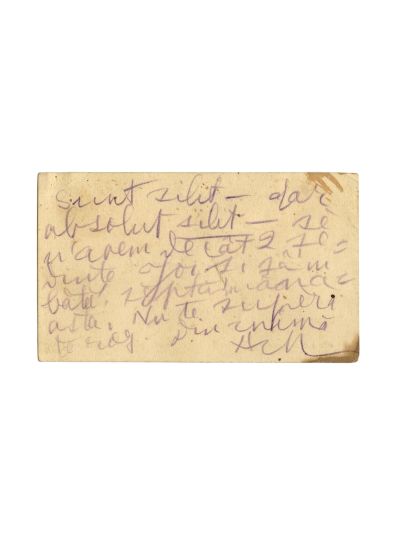 Sunt silit – dar
absolut silit – să
n'avem decât 2 șe=
dințe Joi și Sâm=
bătă săptămâna=
asta. Nu te superi
te rog. Din inimă